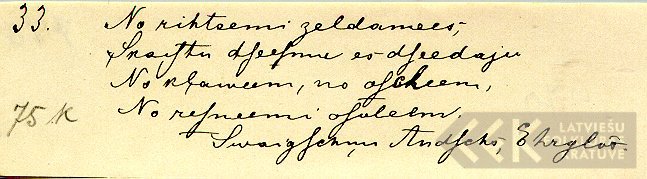 33. No rihtsemi zeldamees,
Skaistu dseesmu es dseedaju
No kļaweem, no oscheem,
75 K No resneemi osoleem.
Swaigschņu Andschs, Ehrgļos.
LATVIEŠU
KRATUVE